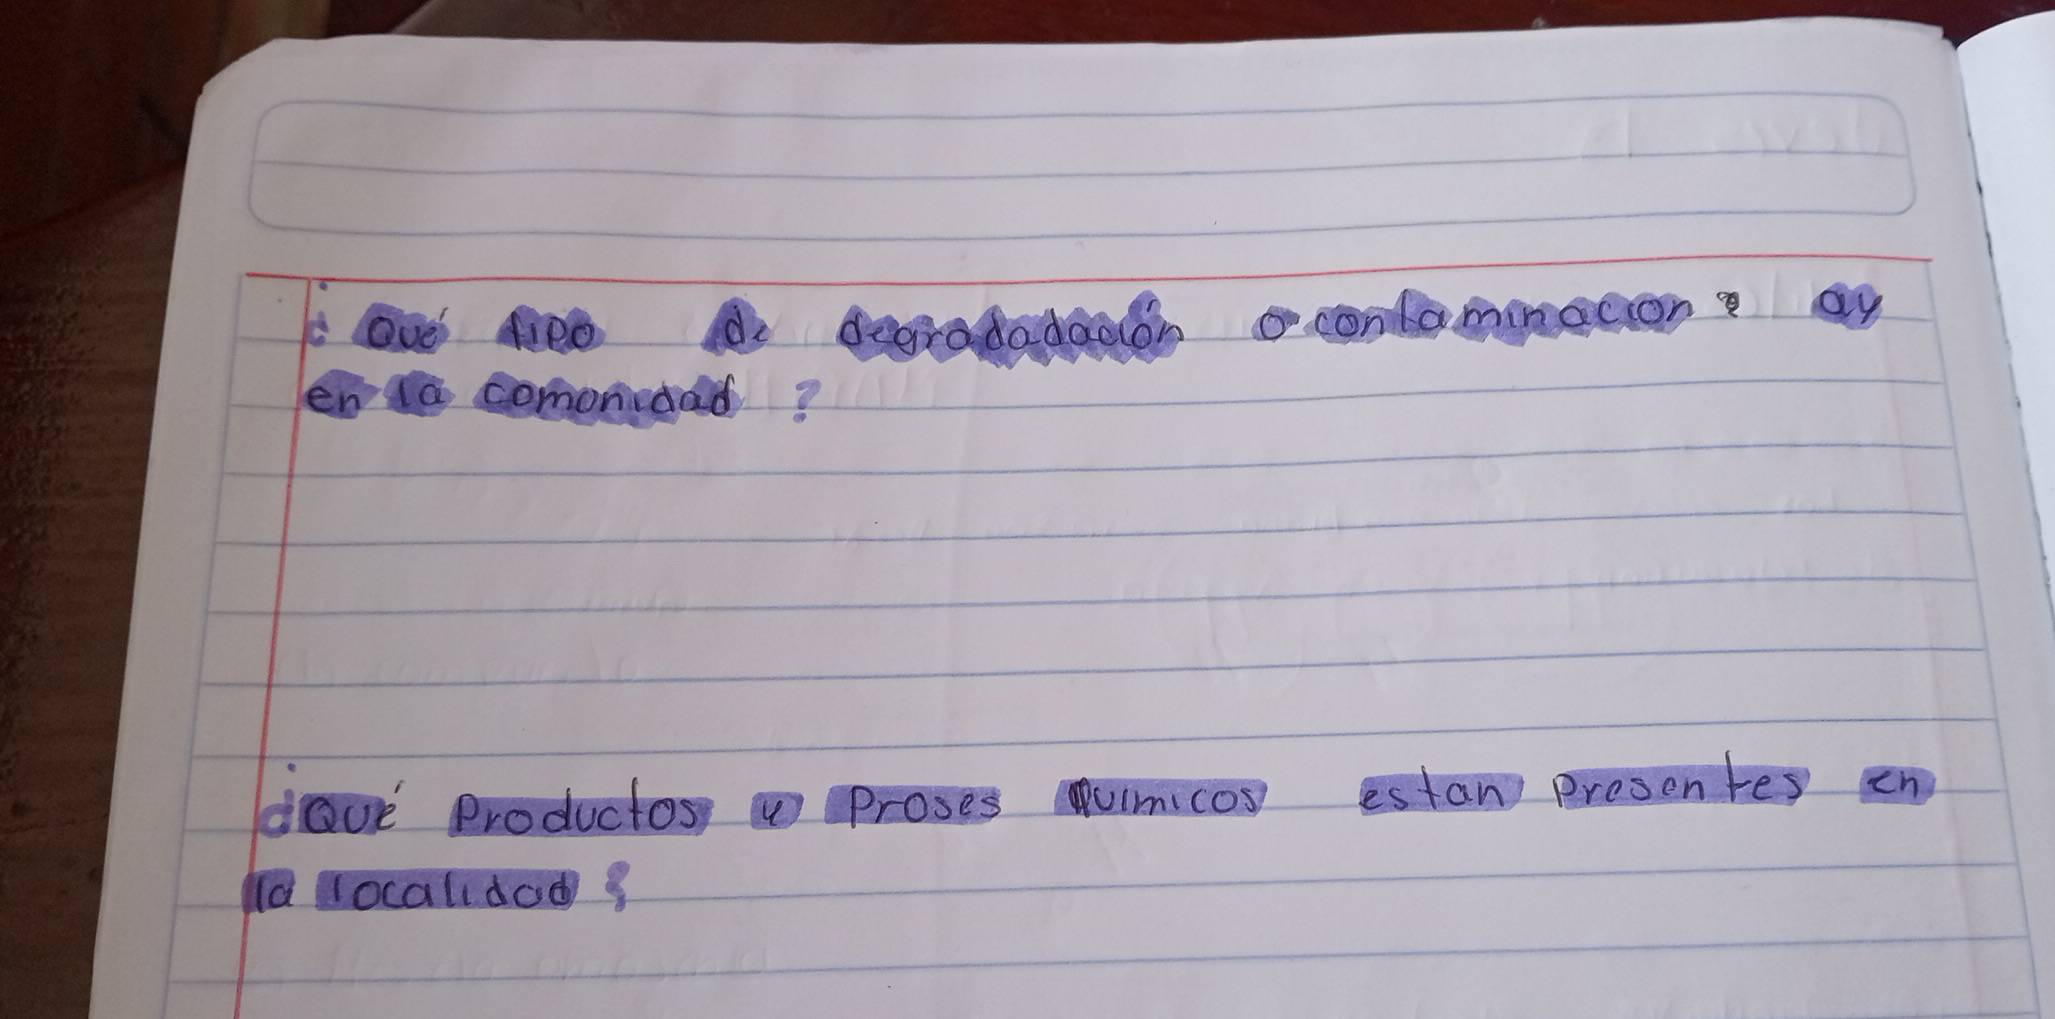 ¿Qué tipo de degradadación o contaminacion ay
en la comonidad?
¿Qué Productos y Proses Quimicos estan presentes en
la localidad?